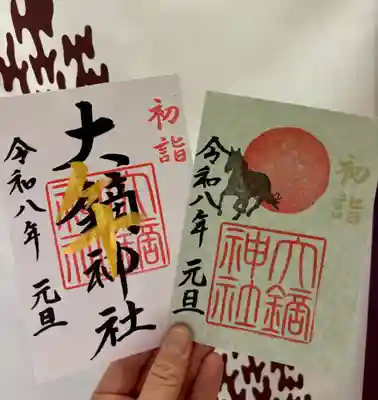 初詣
大鏑神社
令和八年 元旦
大鏑
神社
初詣
令和八年 元旦
大鏑
神社